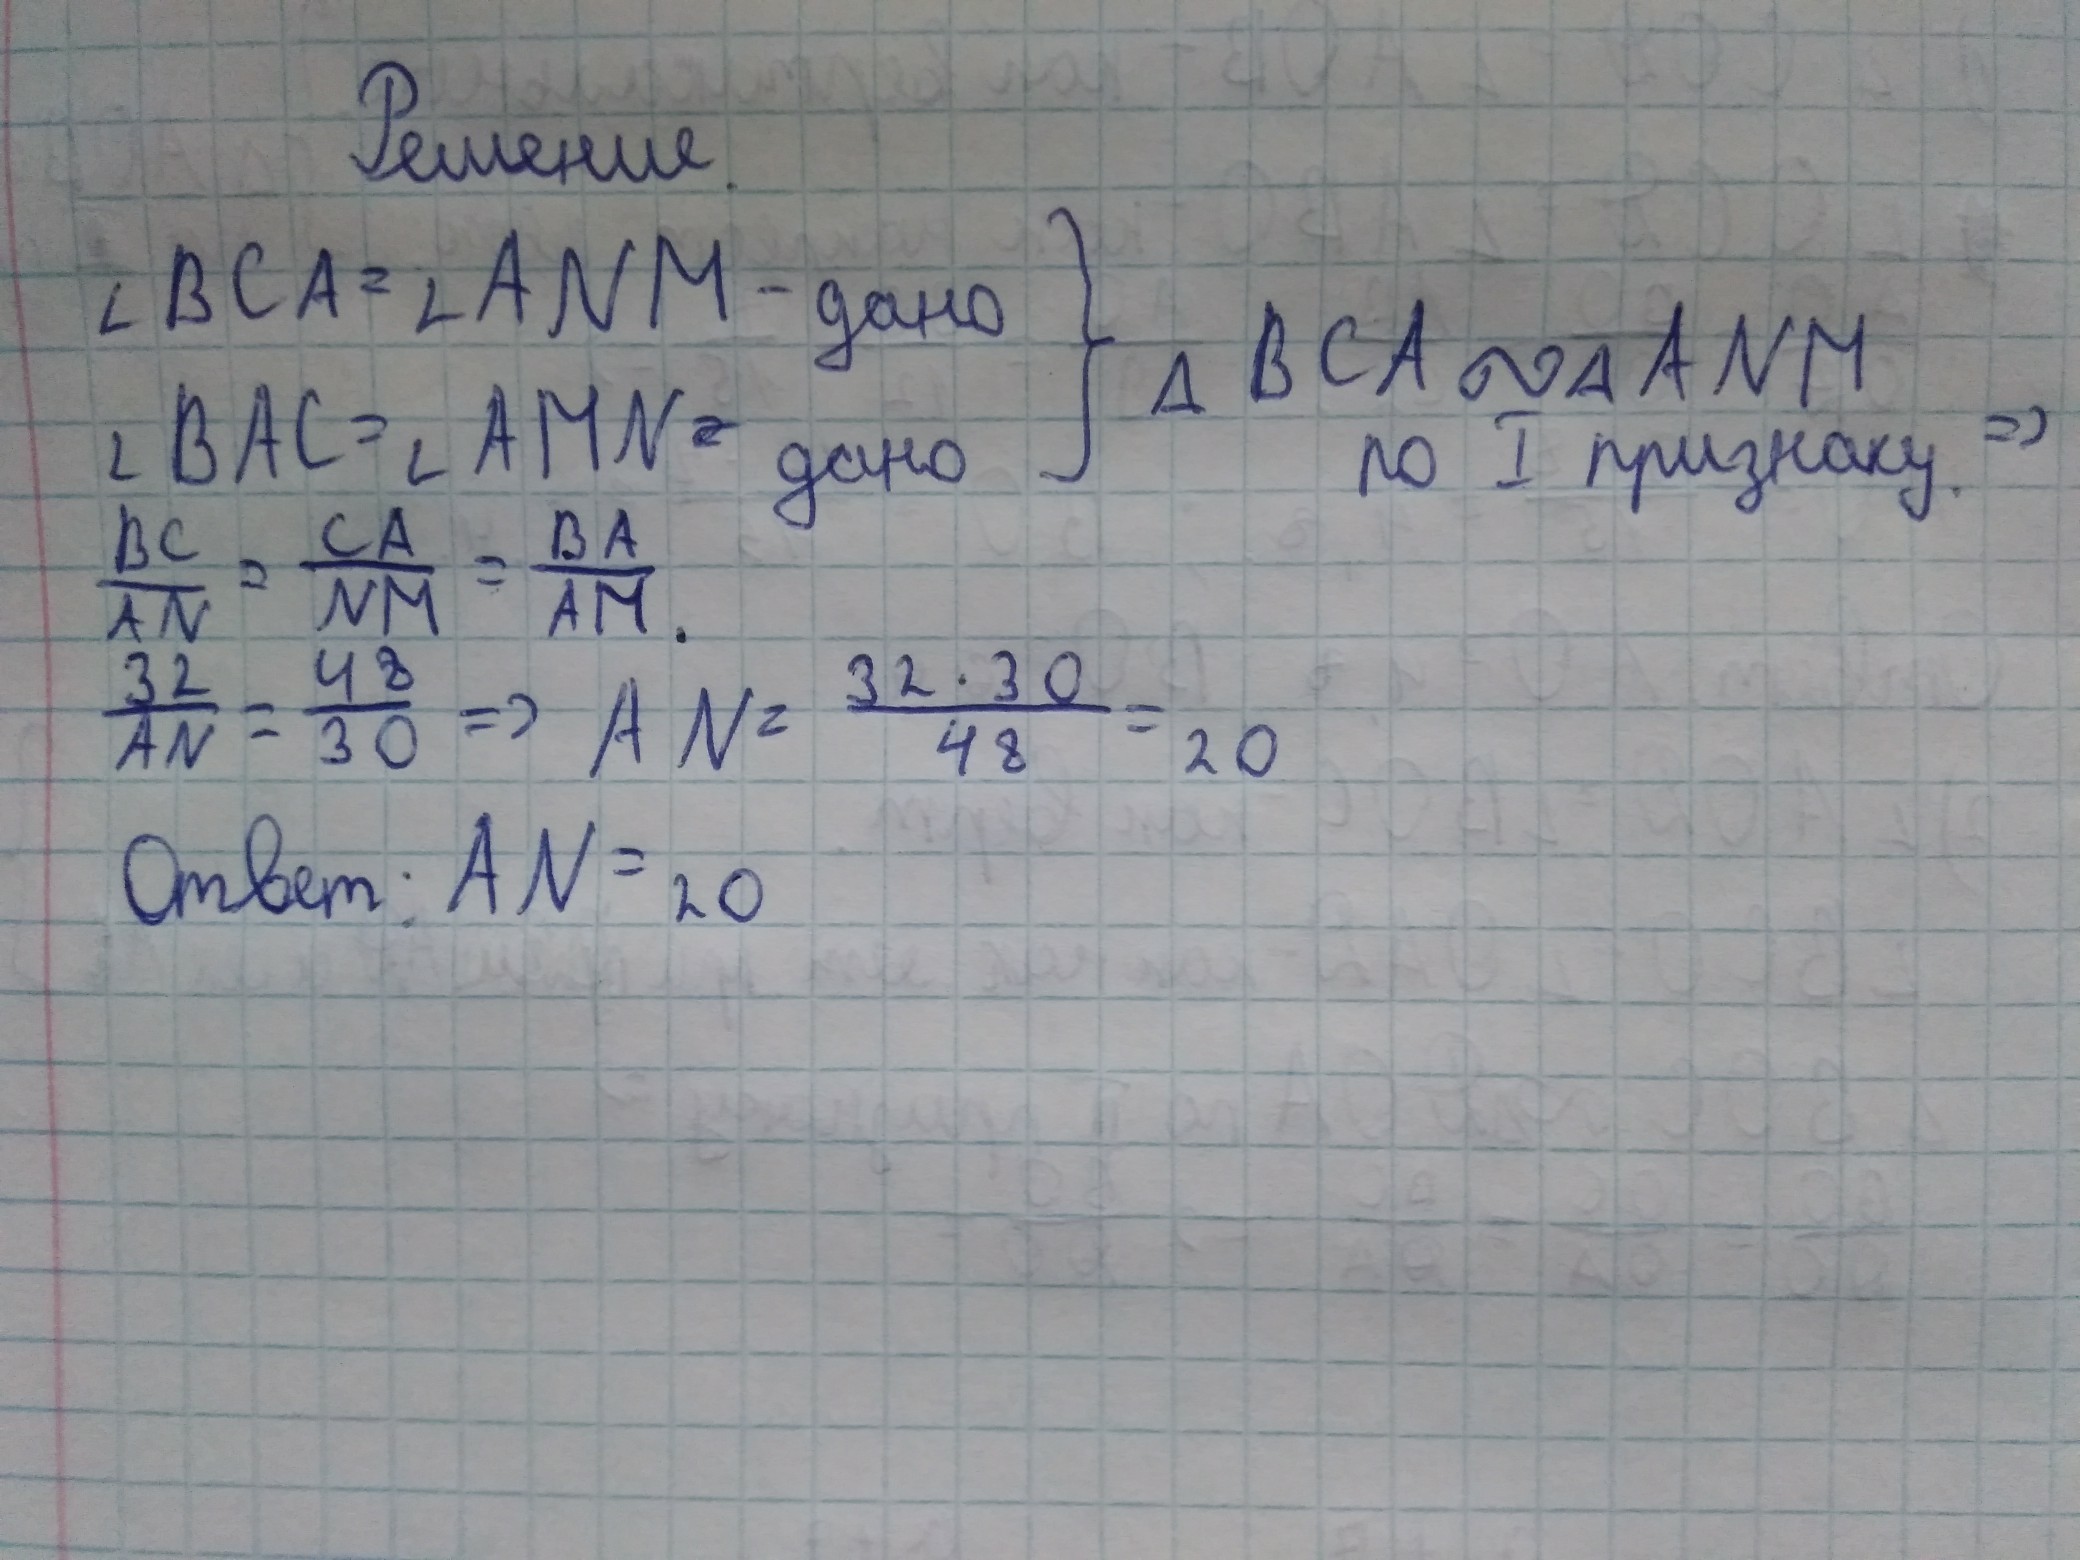 Решение.
∠BCA = ∠ANM - дано
∠BAC = ∠AMN = дано
} △BCA ∾ △ANM
по I признаку. =>
BC/AN = CA/NM = BA/AM.
32/AN = 48/30 => AN = 32·30/48 = 20
Ответ: AN = 20